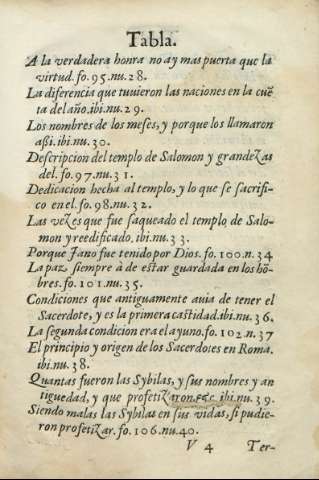 Tabla.
A la verdadera honra no ay mas puerta que la
virtud. fo. 95. nu. 28.
La diferencia que tuuieron las naciones en la cuẽ
ta del año. ibi. nu. 29.
Los nombres de los meses, y porque los llamaron
aßi. ibi. nu. 30.
Descripcion del templo de Salomon y grandezas
del. fo. 97. nu. 31.
Dedicacion hecha al templo, y lo que se sacrifi-
co en el. fo. 98. nu. 32.
Las vezes que fue saqueado el templo de Salo-
mon y reedificado. ibi. nu. 33.
Porque Iano fue tenido por Dios. fo. 100. n. 34
La paz siempre à de estar guardada en los hõ-
bres. fo. 101. nu. 35.
Condiciones que antiguamente auia de tener el
Sacerdote, y es la primera castidad. ibi. nu. 36.
La segunda condicion era el ayuno. fo. 102. n. 37
El principio y origen de los Sacerdotes en Roma.
ibi. nu. 38.
Quantas fueron las Sybilas, y sus nombres y an
tiguedad, y que profetizaron. &c. ibi. nu. 39.
Siendo malas las Sybilas en sus vidas, si pudie-
ron profetizar. fo. 106. nu. 40.
V 4 Ter-